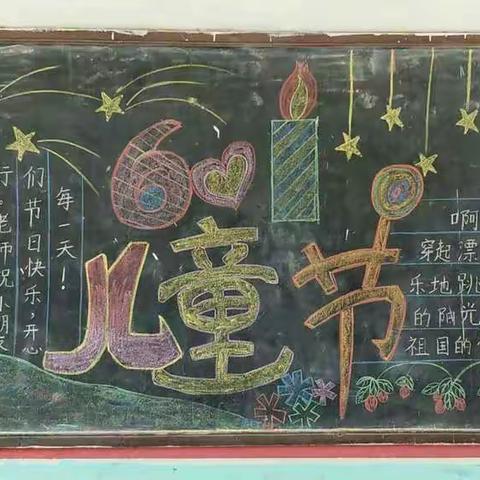 61
儿童节
行。老师祝小朋友
们节日快乐,开心
每一天!
啊
穿起漂
乐地跳
的阳光
祖国的